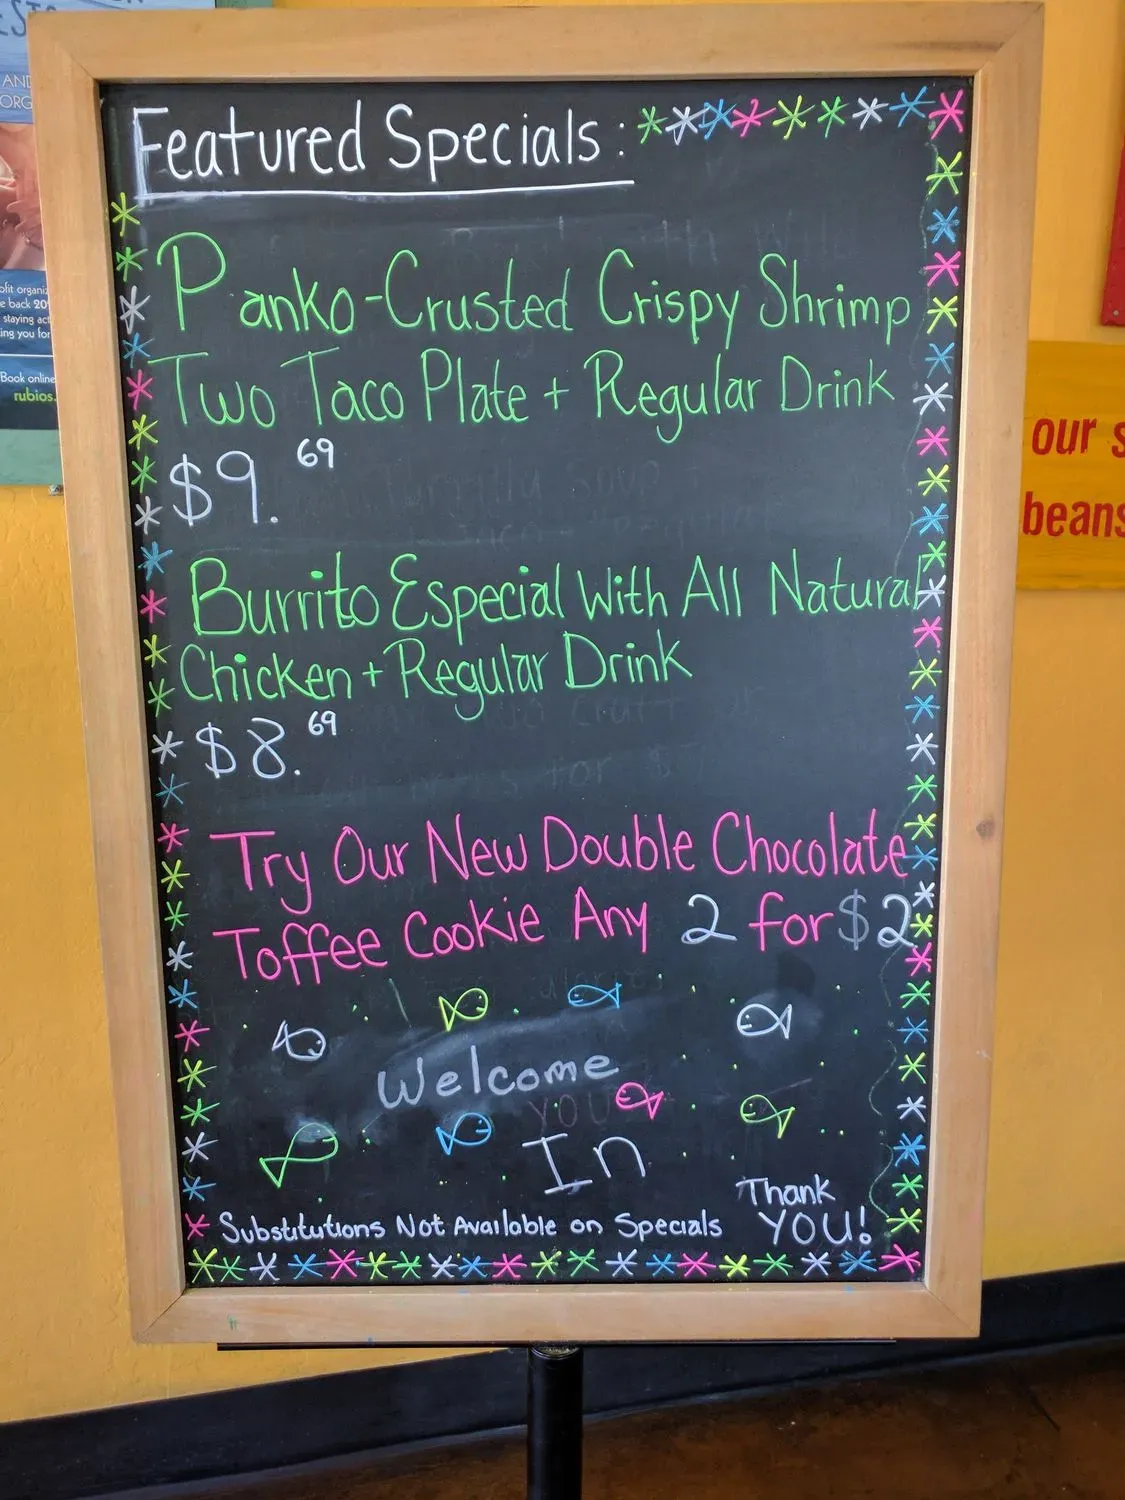 Featured Specials:
Panko-Crusted Crispy Shrimp
Two Taco Plate + Regular Drink
$9.69
Burrito Especial With All Natural
Chicken + Regular Drink
$8.69
Try Our New Double Chocolate
Toffee Cookie Any 2 for $2
Welcome
In
Thank
YOU!
Substitutions Not Available on Specials
AND
ORG
ofit organiz
e back 20
staying act
ing you for
Book online
rubios.
our s
beans